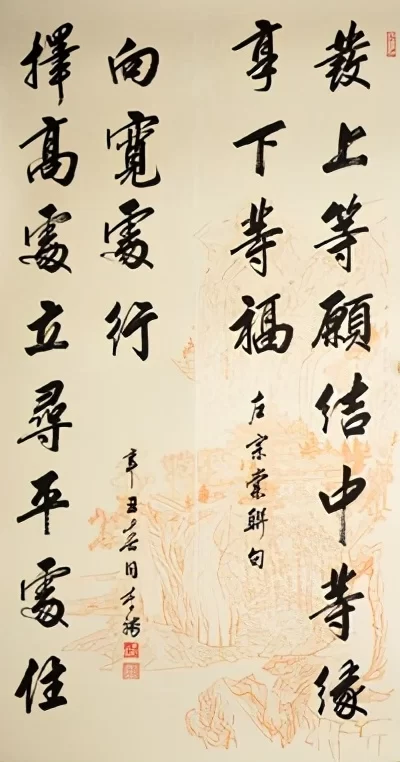 發上等願結中等緣
享下等福
左宗棠聯句
擇高處立尋平處住
向寬處行
辛丑春日